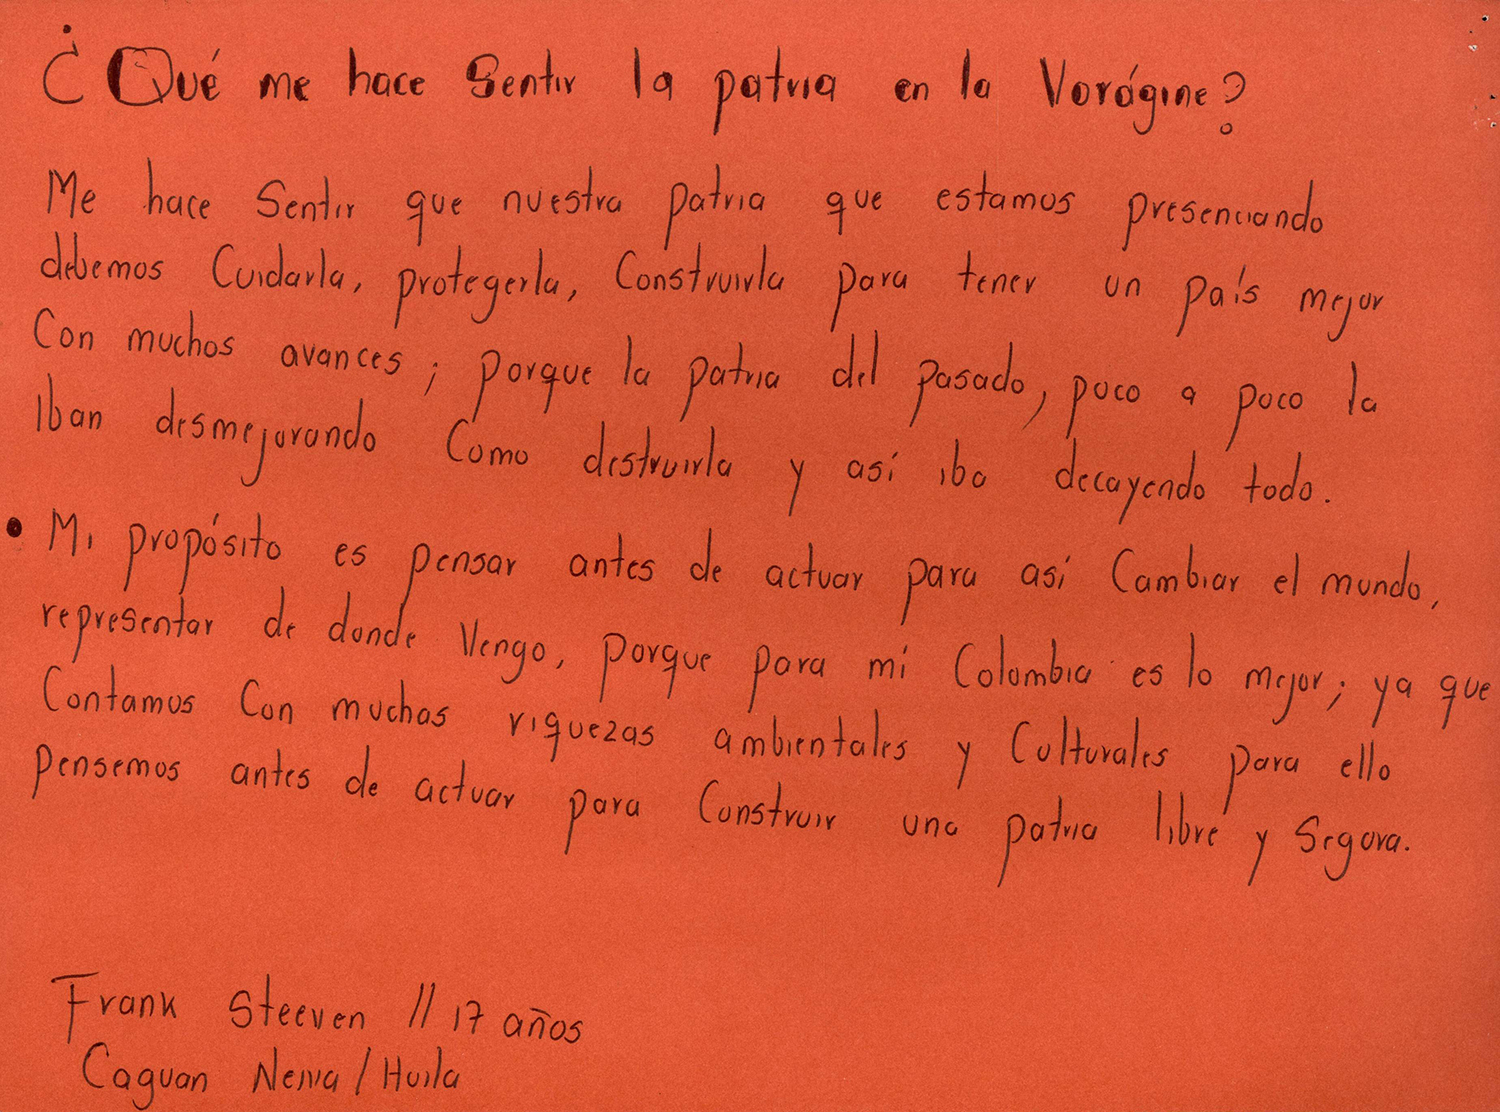 ¿Qué me hace Sentir la patria en la Vorágine?
Me hace Sentir que nuestra patria que estamos presenciando
debemos Cuidarla, protegerla, Construirla para tener un país mejor
Con muchos avances; porque la patria del pasado, poco a poco la
iban desmejorando Como destruirla y así iba decayendo todo.
• Mi propósito es pensar antes de actuar para así Cambiar el mundo,
representar de donde Vengo, porque para mí Colombia es lo mejor; ya que
Contamos Con muchas riquezas ambientales y Culturales para ello
pensemos antes de actuar para Construir una patria libre y Segura.
Frank Steeven // 17 años
Caguan Neiva / Huila